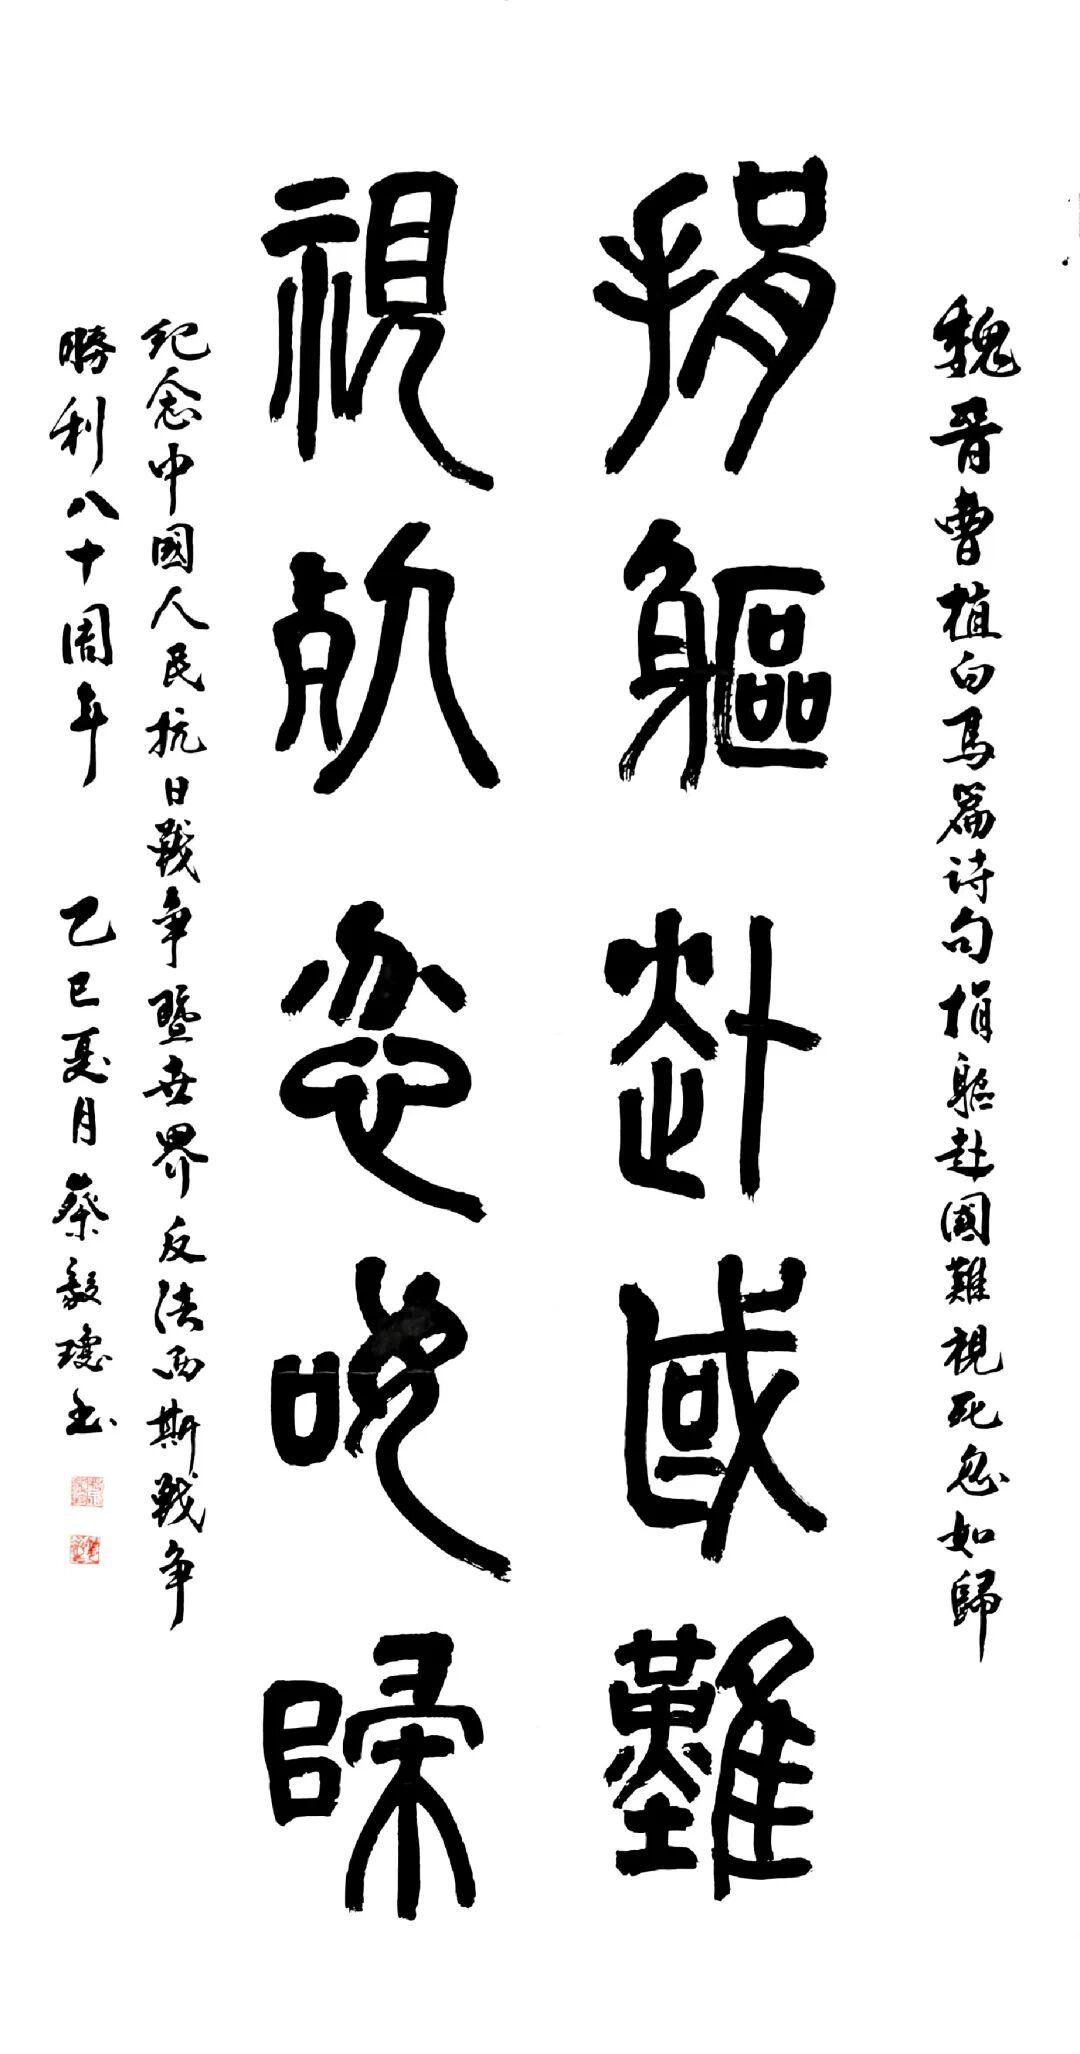 魏晋曹植白马篇诗句捐躯赴國難視死忽如歸
捐軀赴國難
視死忽如歸
纪念中國人民抗日戰争暨世界反法西斯戰争
勝利八十周年 乙巳夏月蔡毅瓊书